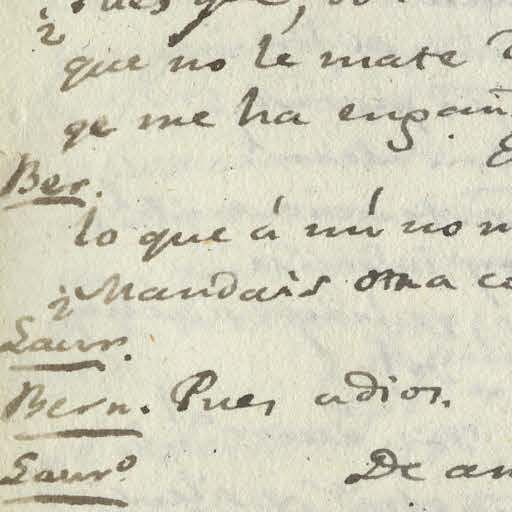 ¿
que no le mate
qe me ha engañ
Ber.
lo que á mí no m
¿Mandais otra co
Laur.
Bern. Pues adios.
Laurº De am